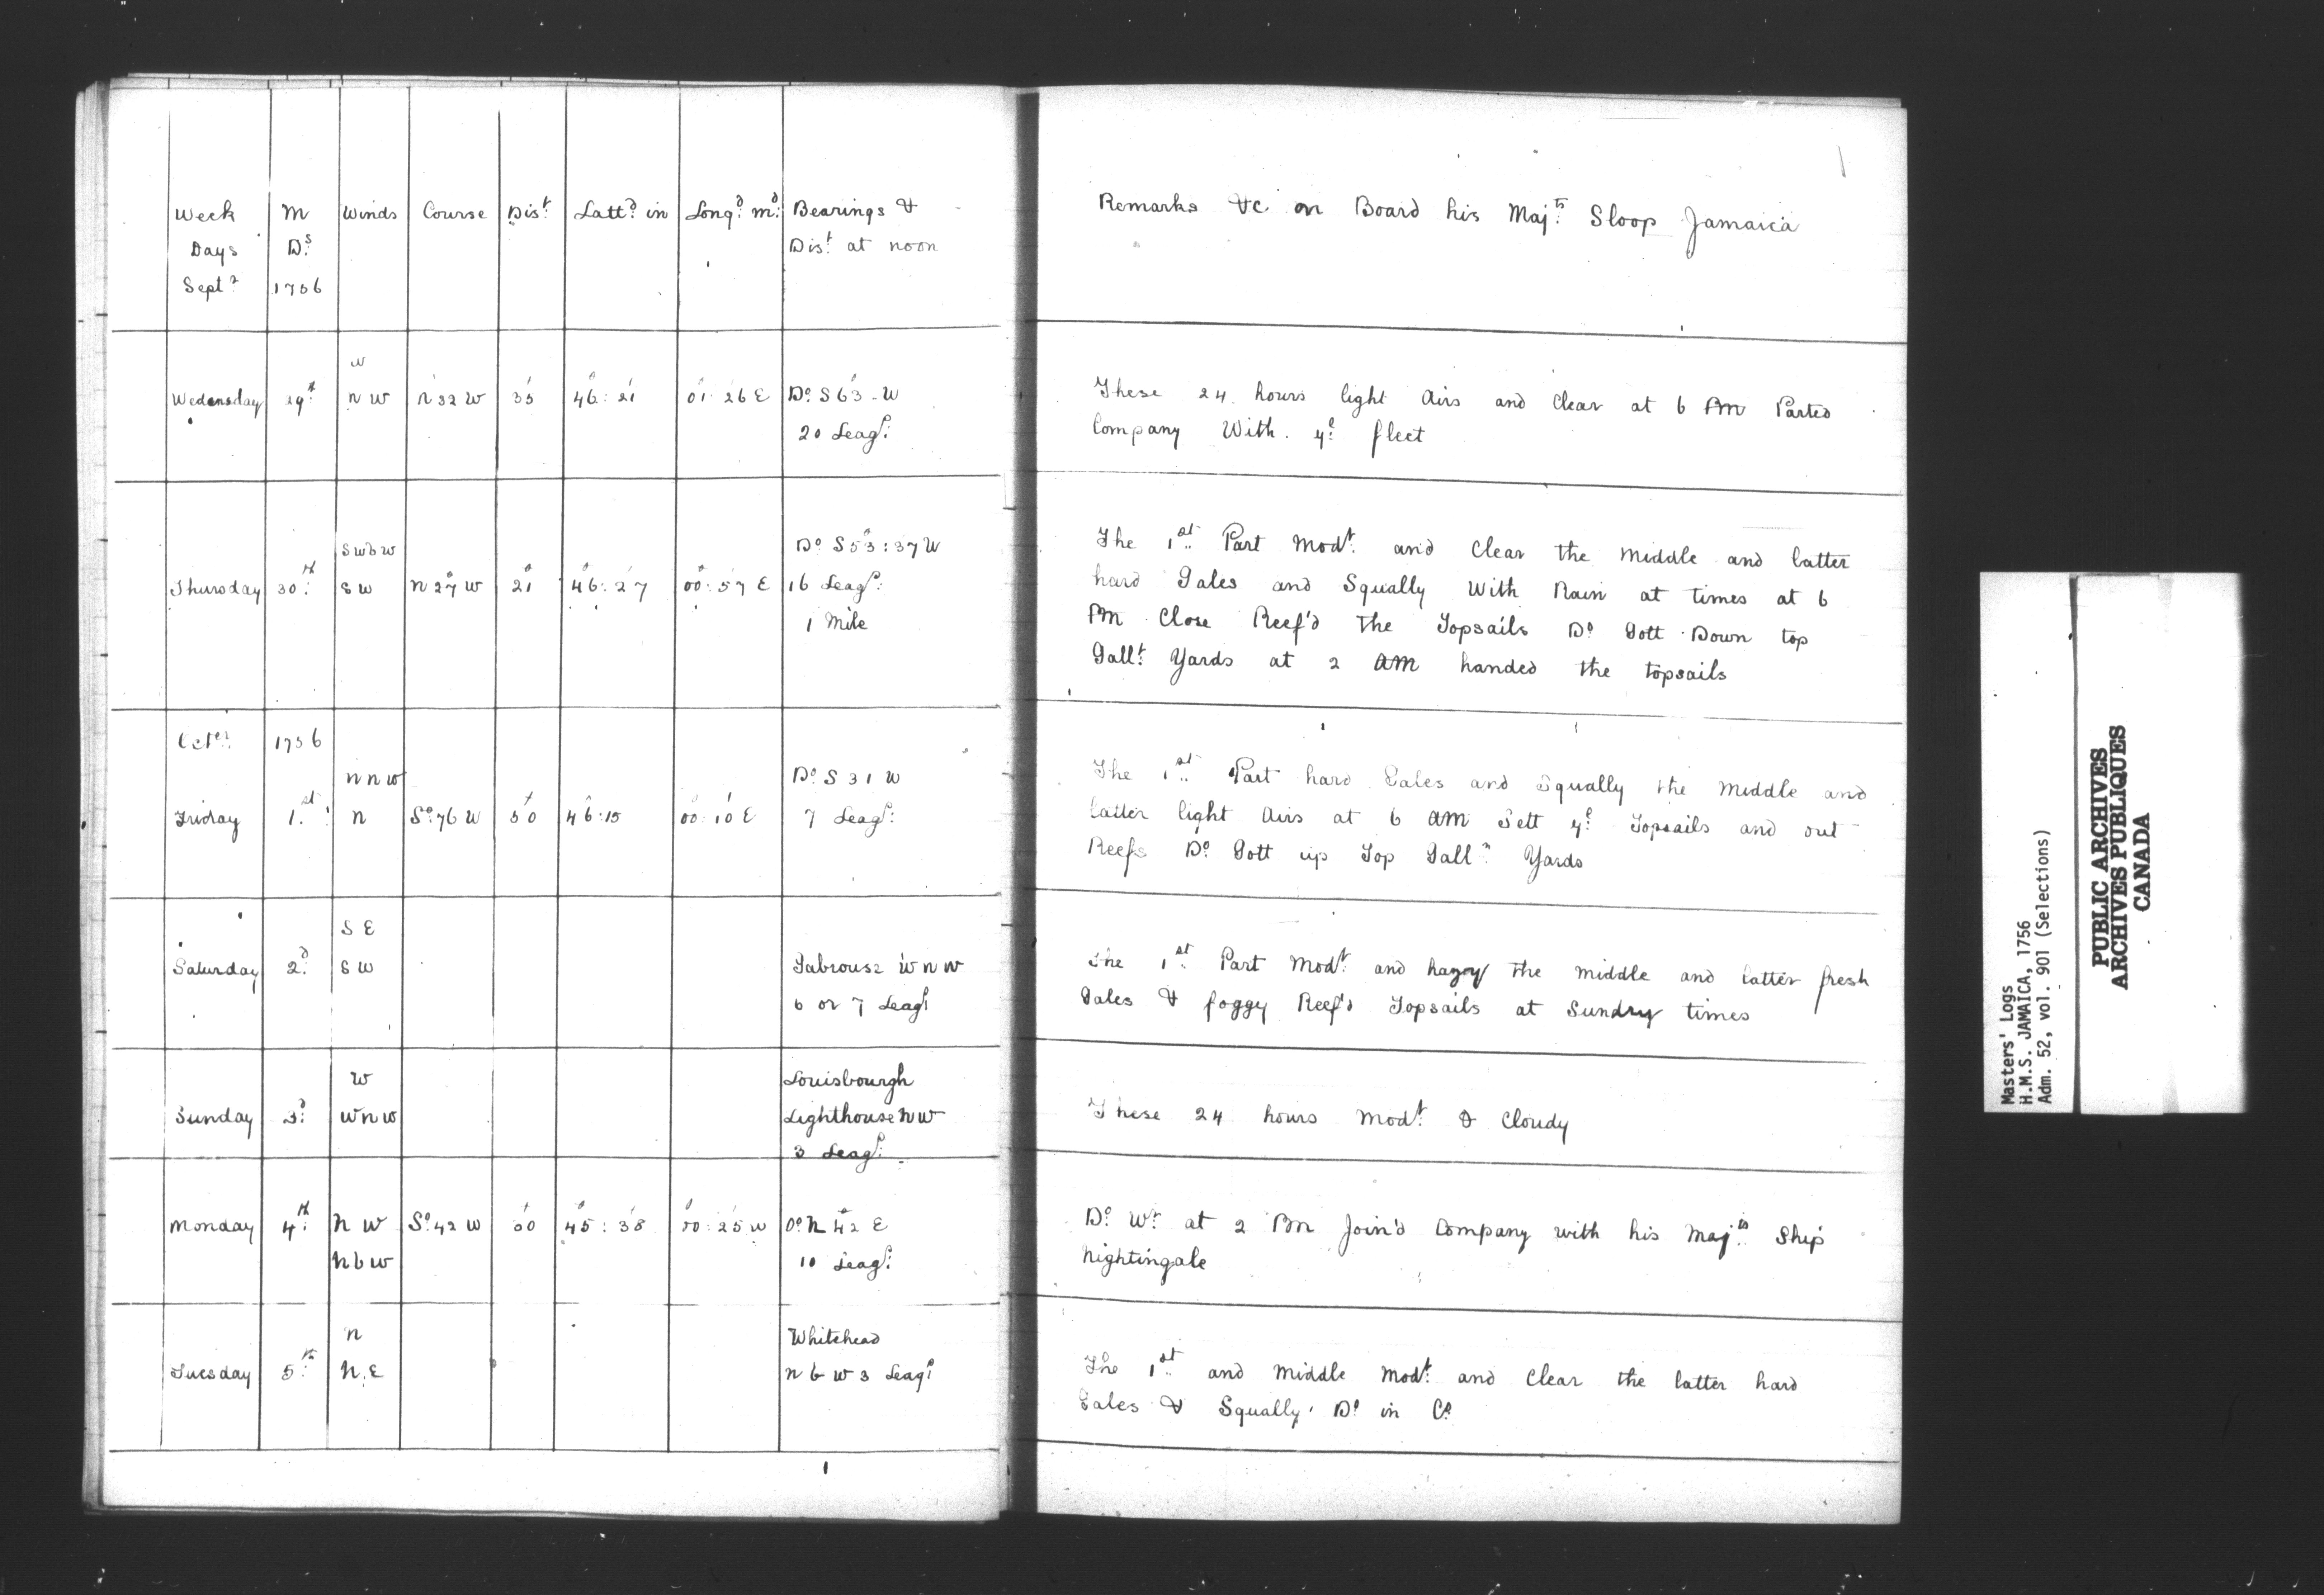 Week Days Sept.r | M D.s 1756 | Winds | Course | Dis.t | Latt.d in | Long.d m.d | Bearings & Dis.t at noon
Remarks &c on Board his Maj.ts Sloop Jamaica
Wedensday | 29.th | W NW | N 32 W | 35 | 46 : 21 | 01 : 26 E | D.o S 63 W 20 Leag.s
These 24 hours light Airs and Clear at 6 PM Parted
Company With y.e fleet
Thursday | 30.th | SWbW SW | N 27 W | 21 | 46 : 27 | 00 : 57 E | D.o S 53 : 37 W 16 Leag.s 1 Mile
The 1.st Part Mod.t and Clear the Middle and latter
hard Gales and Squally With Rain at times at 6
PM Close Reef'd the Topsails D.o Gott Down top
Gall.t Yards at 2 AM handed the topsails
Oct.er 1756
Friday | 1.st | NNW N | S.o 76 W | 50 | 46 : 15 | 00 : 10 E | D.o S 31 W 7 Leag.s
The 1.st Part hard Gales and Squally the Middle and
latter light Airs at 6 AM Sett y.e Topsails and out
Reefs D.o Gott up Top Gall.n Yards
Saturday | 2.d | SE SW | Gabrouse WNW 6 or 7 Leag.s
The 1.st Part Mod.t and hazey the Middle and latter fresh
Gales & foggy Reef'd Topsails at Sundry times
Sunday | 3.d | W WNW | Louisbourgh Lighthouse NW 3 Leag.s
These 24 hours Mod.t & Cloudy
Monday | 4.th | NW NbW | S.o 42 W | 45 : 38 | 00 : 25 W | D.o N 42 E 10 Leag.s
D.o W.r at 2 PM Join'd Company with his Maj.ts Ship
Nightingale
Tuesday | 5.th | N N.E | Whitehead N b W 3 Leag.s
The 1.st and Middle Mod.t and Clear the latter hard
Gales & Squally D.o in C.o
Masters' Logs
H.M.S. JAMAICA, 1756
Adm. 52, vol. 901 (Selections)
PUBLIC ARCHIVES
ARCHIVES PUBLIQUES
CANADA